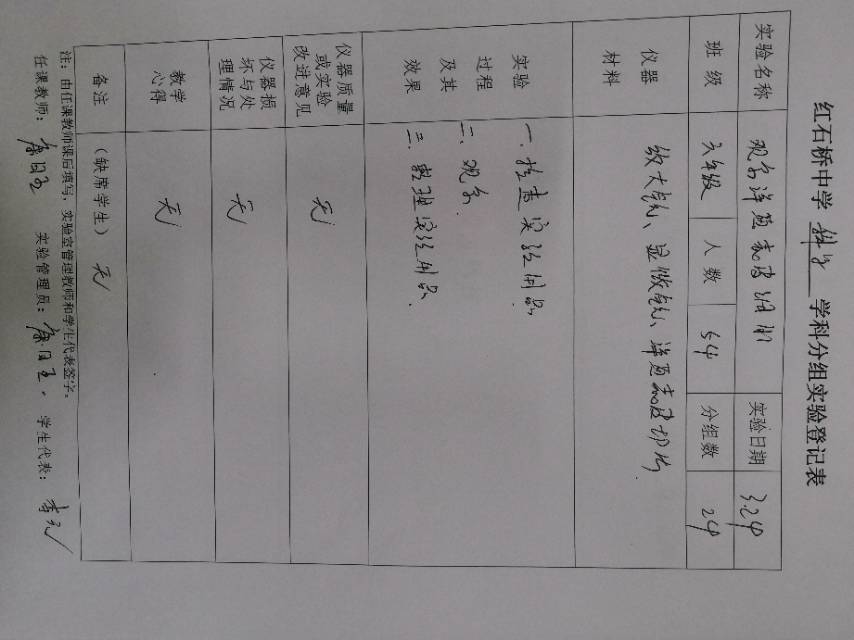 红石桥中学 科学 学科分组实验登记表
实验名称 观察洋葱表皮细胞 实验日期 3.24
班级 六年级 人数 54 分组数 24
仪器 材料 放大镜、显微镜、洋葱表皮切片
实验 过程 及其 效果
一、检查实验用品
二、观察.
三、整理实验用品.
仪器质量 或实验 改进意见 无
仪器损 坏与处 理情况 无
教学 心得 无
备注 (缺席学生) 无
注：由任课教师课后填写，实验室管理教师和学生代表签字。
任课教师： 实验管理员： 学生代表：